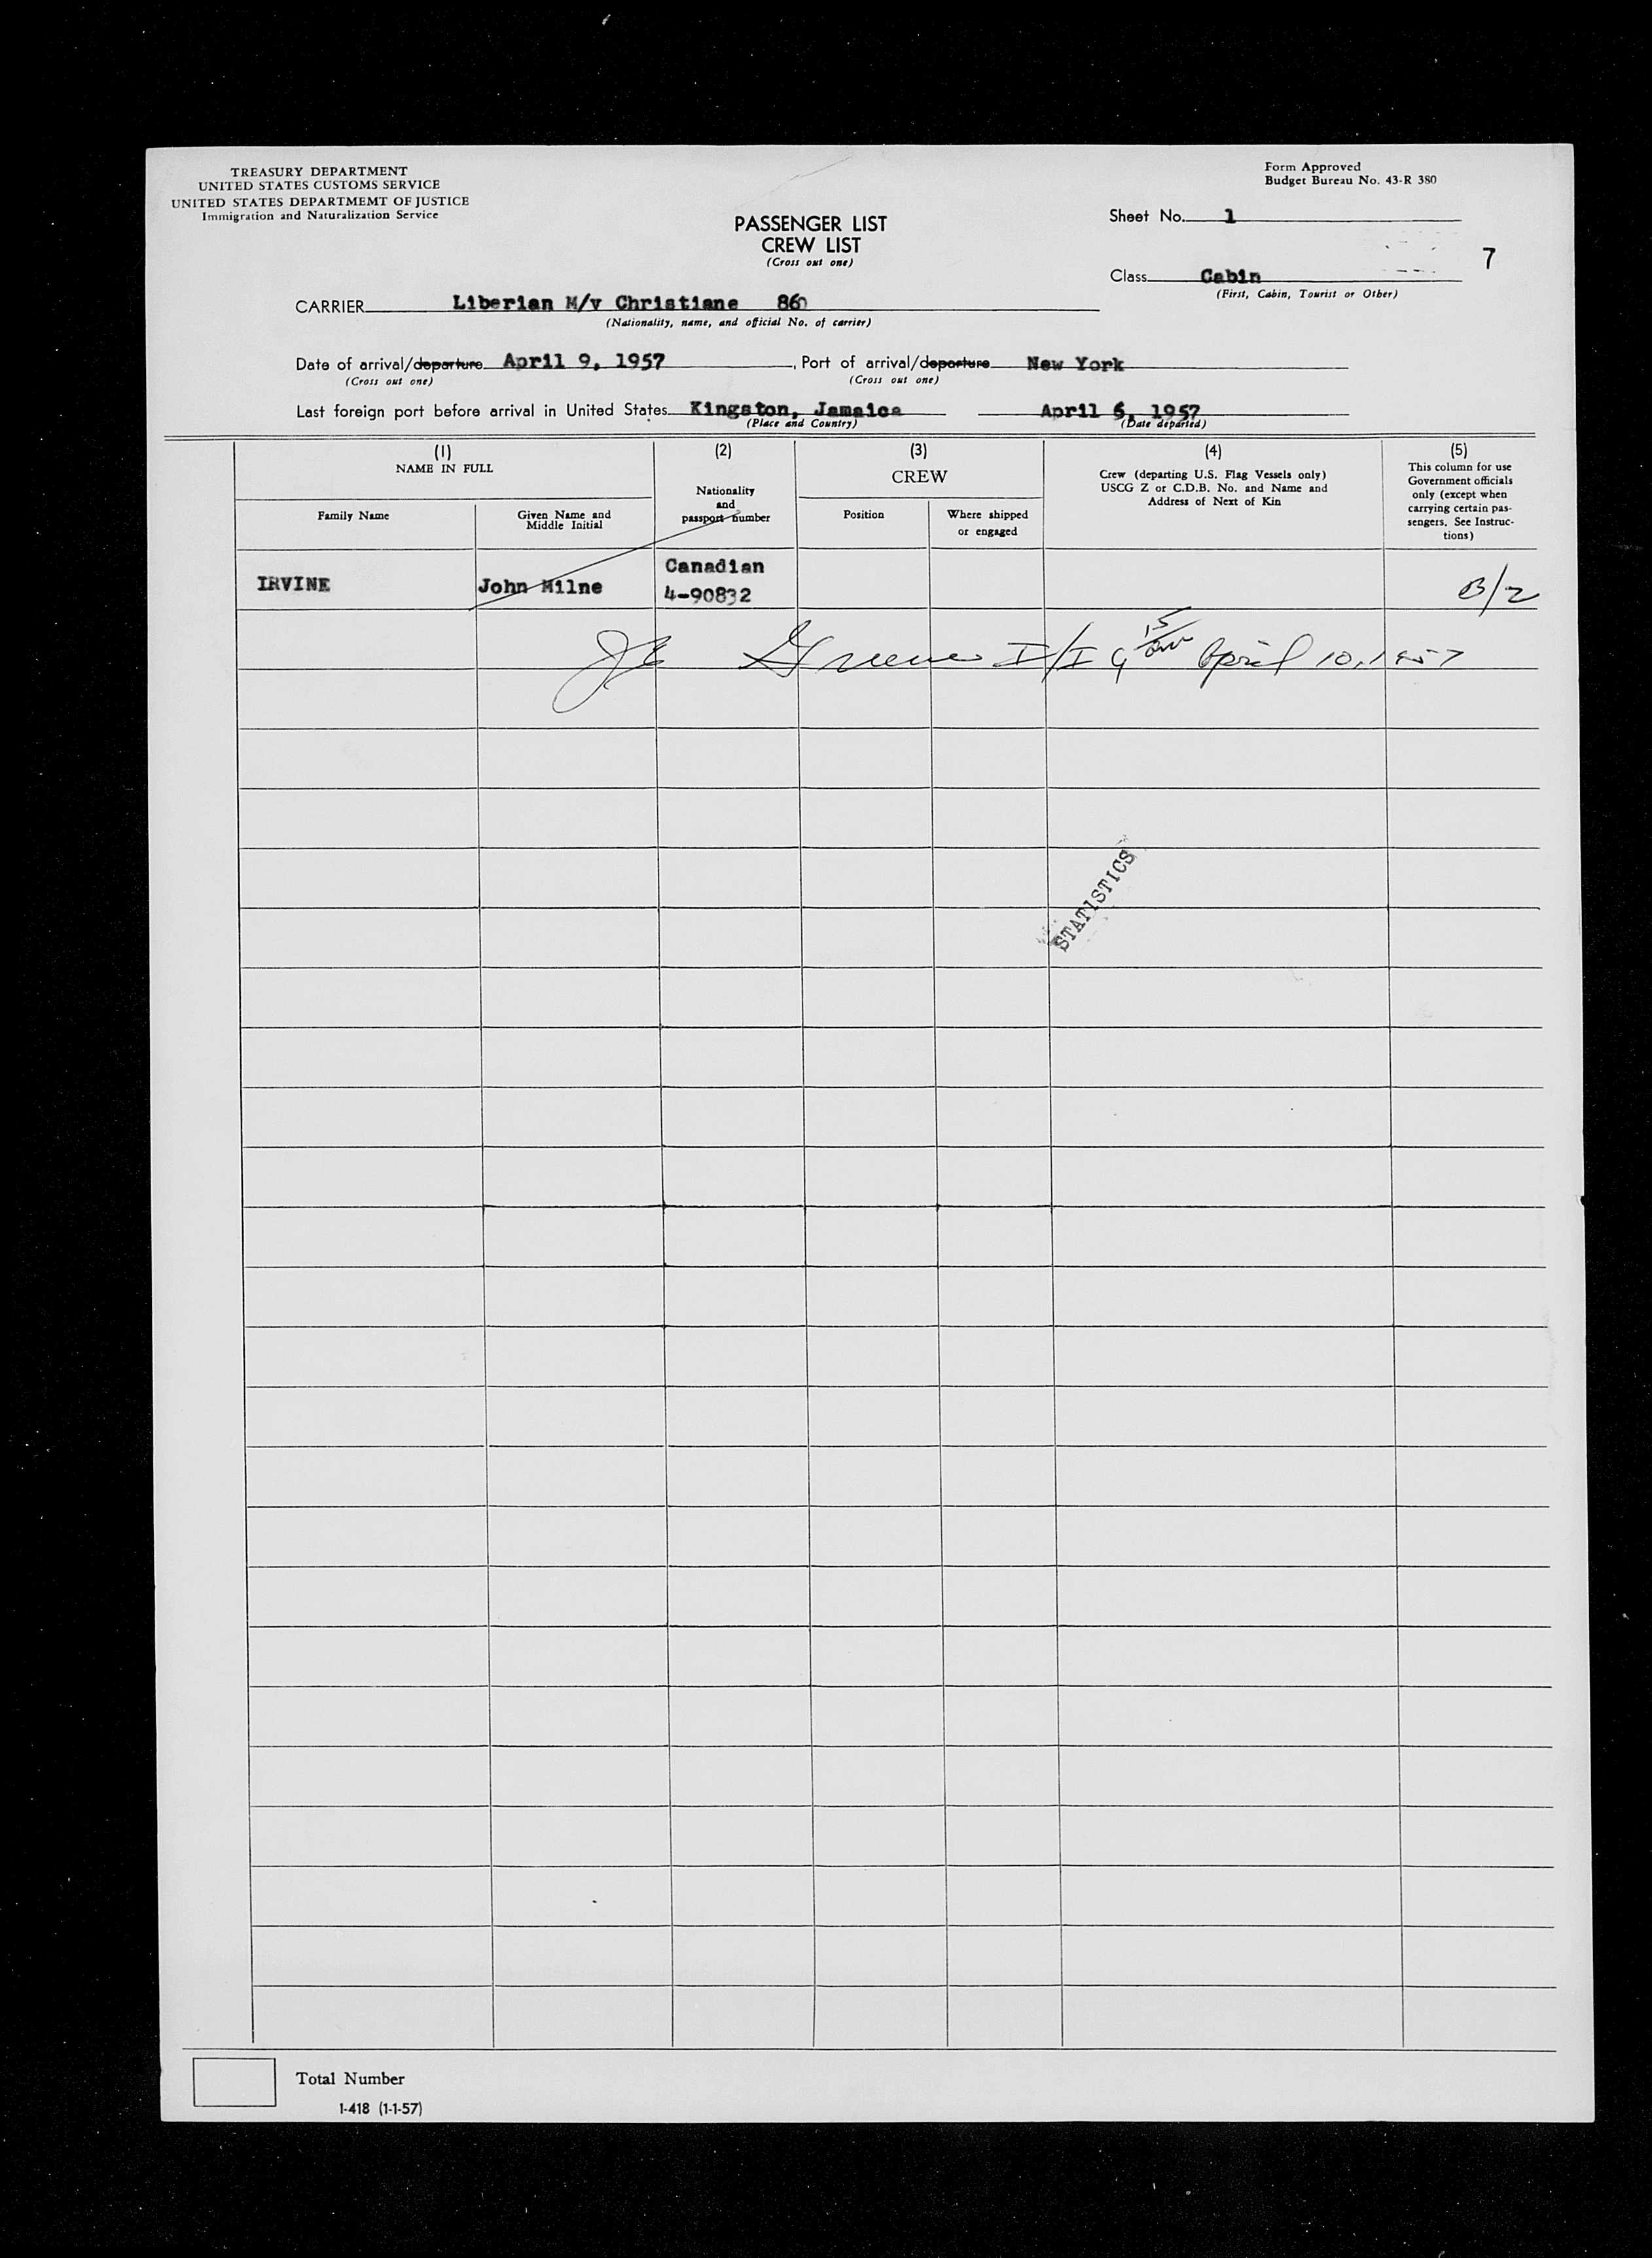 TREASURY DEPARTMENT
UNITED STATES CUSTOMS SERVICE
UNITED STATES DEPARTMEMT OF JUSTICE
Immigration and Naturalization Service
Form Approved
Budget Bureau No. 43-R 380
PASSENGER LIST
CREW LIST
(Cross out one)
Sheet No. 1
7
Class Cabin
(First, Cabin, Tourist or Other)
CARRIER Liberian M/v Christiane 860
(Nationality, name, and official No. of carrier)
Date of arrival/departure April 9, 1957, Port of arrival/departure New York
(Cross out one) (Cross out one)
Last foreign port before arrival in United States Kingston, Jamaica April 6, 1957
(Place and Country) (Date departed)
(1)
NAME IN FULL
Family Name
Given Name and
Middle Initial
(2)
Nationality
and
passport number
(3)
CREW
Position
Where shipped
or engaged
(4)
Crew (departing U.S. Flag Vessels only)
USCG Z or C.D.B. No. and Name and
Address of Next of Kin
(5)
This column for use
Government officials
only (except when
carrying certain pas-
sengers. See Instruc-
tions)
IRVINE
John Milne
Canadian
4-90832
B/2
Greene I/I April 10, 1957
STATISTICS
Total Number
I-418 (1-1-57)